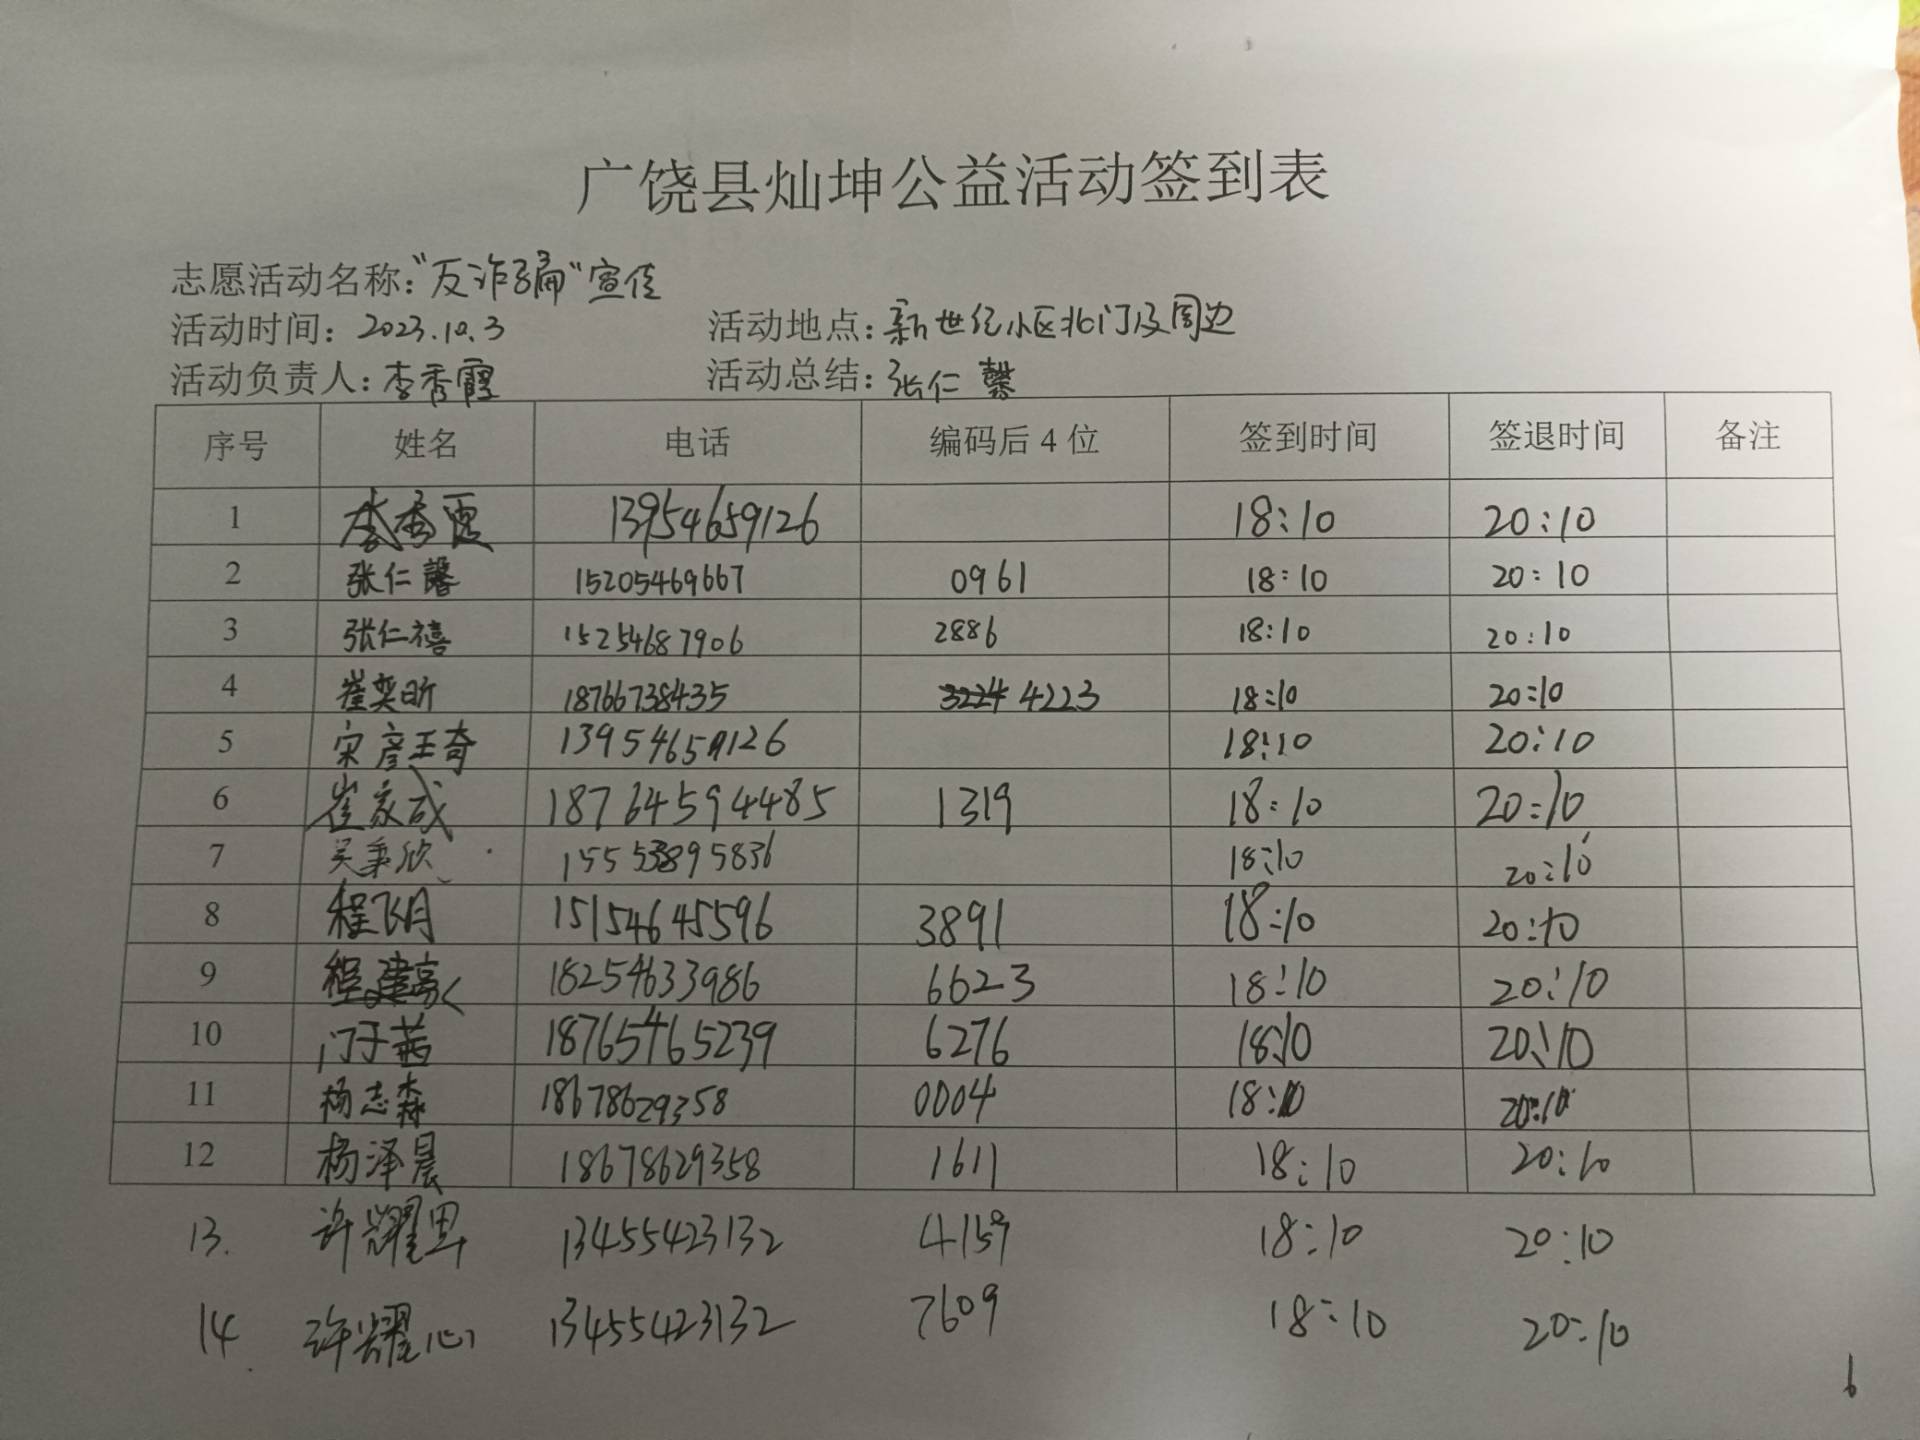 广饶县灿坤公益活动签到表
志愿活动名称："反诈骗"宣传
活动时间：2023.10.3 活动地点：新世纪小区北门及周边
活动负责人：李秀霞 活动总结：张仁馨
序号 姓名 电话 编码后4位 签到时间 签退时间 备注
1 李秀霞 13954659126 18:10 20:10
2 张仁馨 15205469667 0961 18:10 20:10
3 张仁禧 15254687906 2886 18:10 20:10
4 崔奕昕 18766738435 3224 4223 18:10 20:10
5 宋彦王奇 13954659126 18:10 20:10
6 崔家成 18764594485 1319 18:10 20:10
7 吴秉欣 15553895836 18:10 20:10
8 程飞月 15154645596 3891 18:10 20:10
9 程建 18254633986 6623 18:10 20:10
10 门于茜 18765465239 6276 18:10 20:10
11 杨志森 18678629358 0004 18:10 20:10
12 杨泽晨 18678629358 1611 18:10 20:10
13. 许耀思 13455423132 4159 18:10 20:10
14. 许耀心 13455423132 7609 18:10 20:10